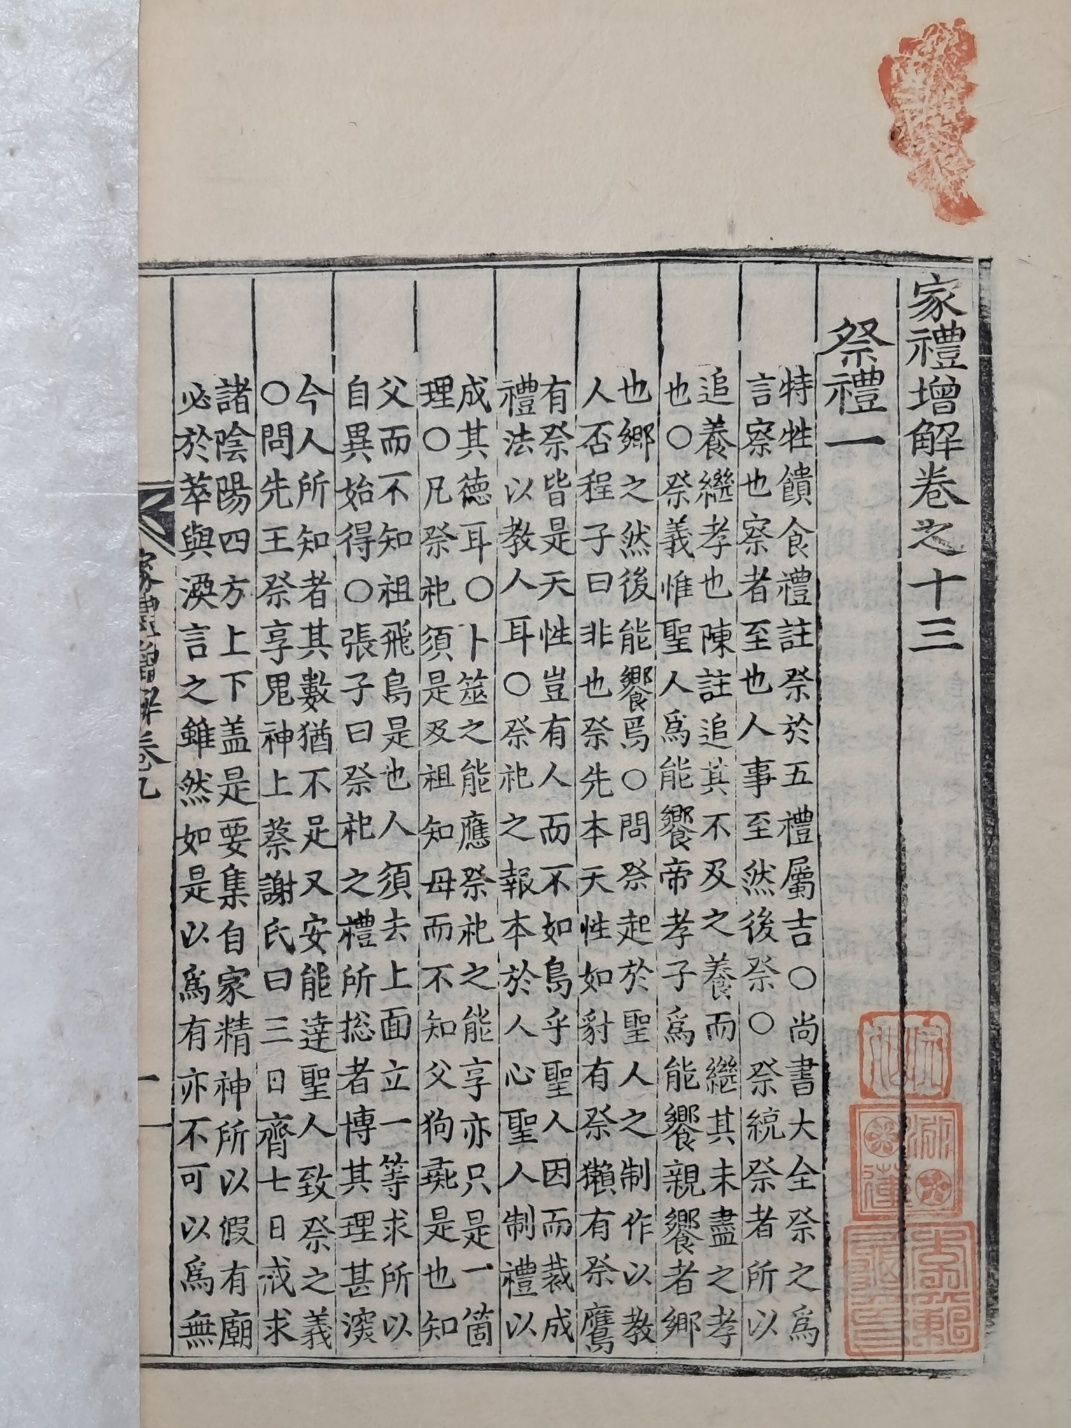 家禮增解卷之十三
祭禮一
特牲饋食禮註祭於五禮屬吉○尚書大全祭之爲
言察也察者至也人事至然後祭○祭統祭者所以
追養繼孝也陳註追其不及之養而繼其未盡之孝
也○祭義惟聖人爲能饗帝孝子爲能饗親饗者鄉
也鄉之然後能饗焉○問祭起於聖人之制作以教
人否程子曰非也祭先本天性如豺有祭獺有祭鷹
有祭皆是天性豈有人而不如鳥乎聖人因而裁成
禮法以教人耳○祭祀之報本於人心聖人制禮以
成其德耳○卜筮之能應祭祀之能享亦只是一箇
理○凡祭祀須是及祖知母而不知父狗彘是也知
父而不知祖飛鳥是也人須去上面立一等求所以
自異始得○張子曰祭祀之禮所揔者博其理甚深
今人所知者其數猶不足又安能達聖人致祭之義
○問先王祭享鬼神上蔡謝氏曰三日齊七日戒求
諸陰陽四方上下盖是要集自家精神所以假有廟
必於萃與渙言之雖然如是以爲有亦不可以爲無
家禮增解卷九
一